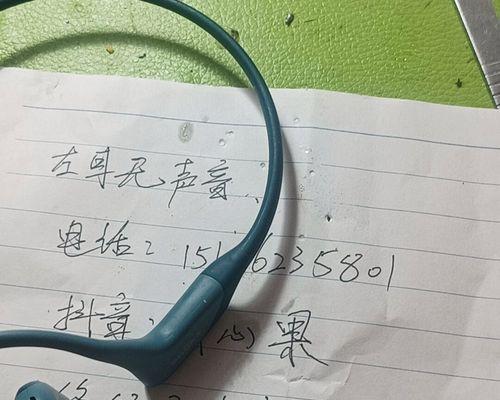 左耳无声音
电话：15 6235801
抖音： 心 果